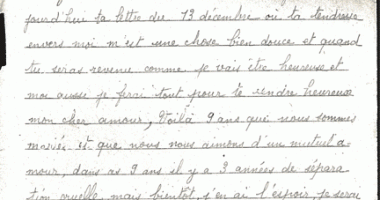 jourd'hui ta lettre du 13 décembre où ta tendresse
envers moi m'est une chose bien douce et quand
tu seras revenu comme je vais être heureuse et
moi aussi je ferai tout pour te rendre heureux
mon cher amour, Voilà 9 ans que nous sommes
mariés et que nous nous aimons d'un mutuel a-
mour, dans as 9 ans il y a 3 années de sépara
tion cruelle, mais bientôt, j'en ai l'espoir, je serai